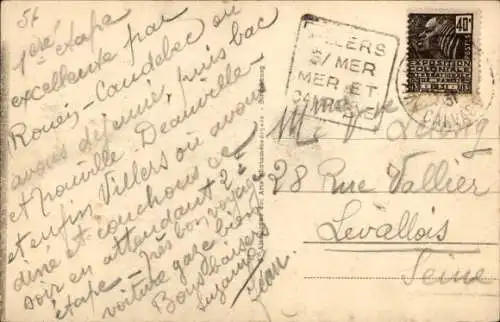 1ère étape
excellente par
Rouen-Caudebec où
avons déjeuné, puis bac
et Deauville
et enfin Villers où avons
dîné et couchons ce
soir en attendant 2e
étape - Très bon voyage
voiture gaze bien
Bons baisers
Suzanne
Jean.
VILLERS
S/ MER
MER ET
CAMPAGNE
40c
POSTES
EXPOSITION
COLONIALE
INTERNATIONALE
PARIS 1931
CALVADOS
28 Rue Vallier
Levallois
Seine